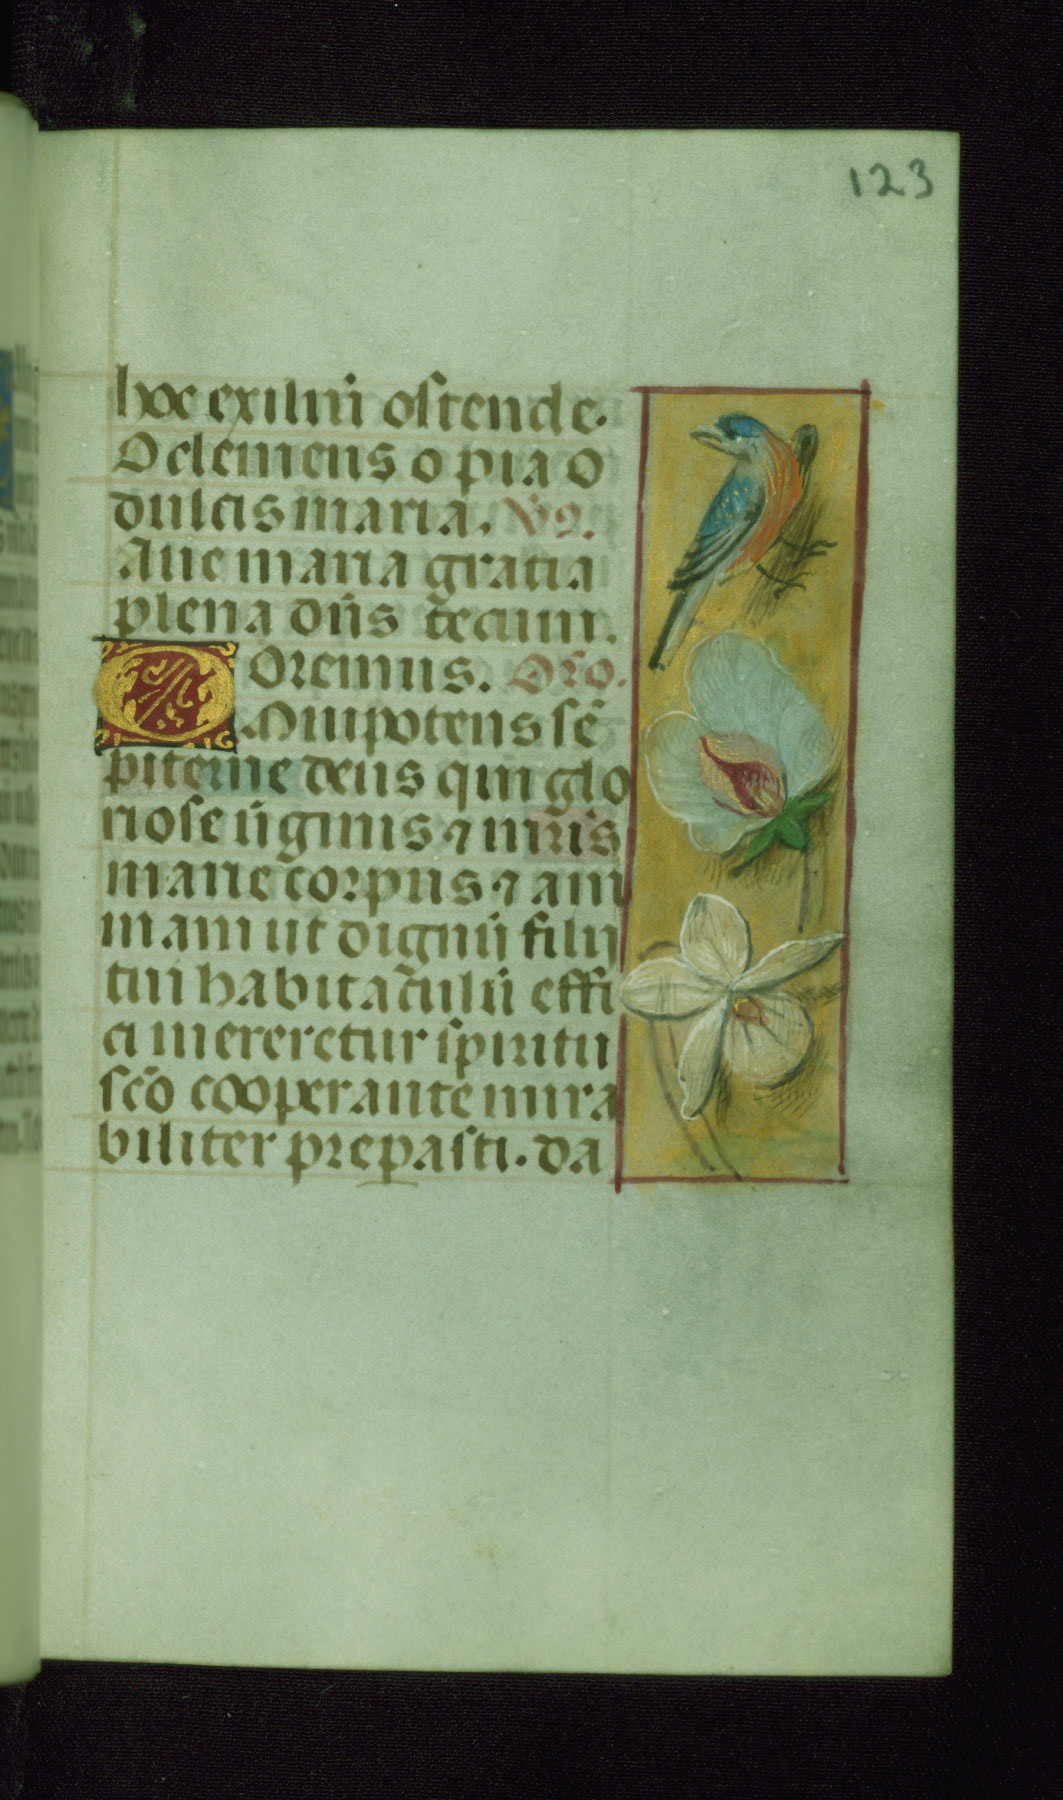 123
hoc exiliū ostende.
O clemens o pia o
dulcis maria. Vs.
Aue maria gratia
plena dn̄s tecum.
Oremus. Oro.
Omnipotens sē
piterne deus qui glo
riose ūginis ⁊ mr̄is
marie corpus ⁊ ani
mam ut dignū filij
tui habitac̄ulū effi
ci mereretur spiritu
scō cooperante mira
biliter prep̱asti. da